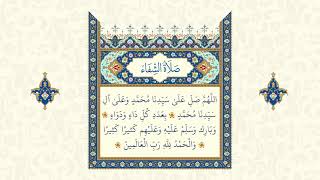 صَلَاةُ الشِّفَاءِ
اَللّٰهُمَّ صَلِّ عَلَىٰ سَيِّدِنَا مُحَمَّدٍ وَعَلَىٰ آلِ
سَيِّدِنَا مُحَمَّدٍ بِعَدَدِ كُلِّ دَاءٍ وَدَوَاءٍ
وَبَارِكْ وَسَلِّمْ عَلَيْهِ وَعَلَيْهِمْ كَثِيرًا كَثِيرًا
وَالْحَمْدُ لِلّٰهِ رَبِّ الْعَالَمِينَ